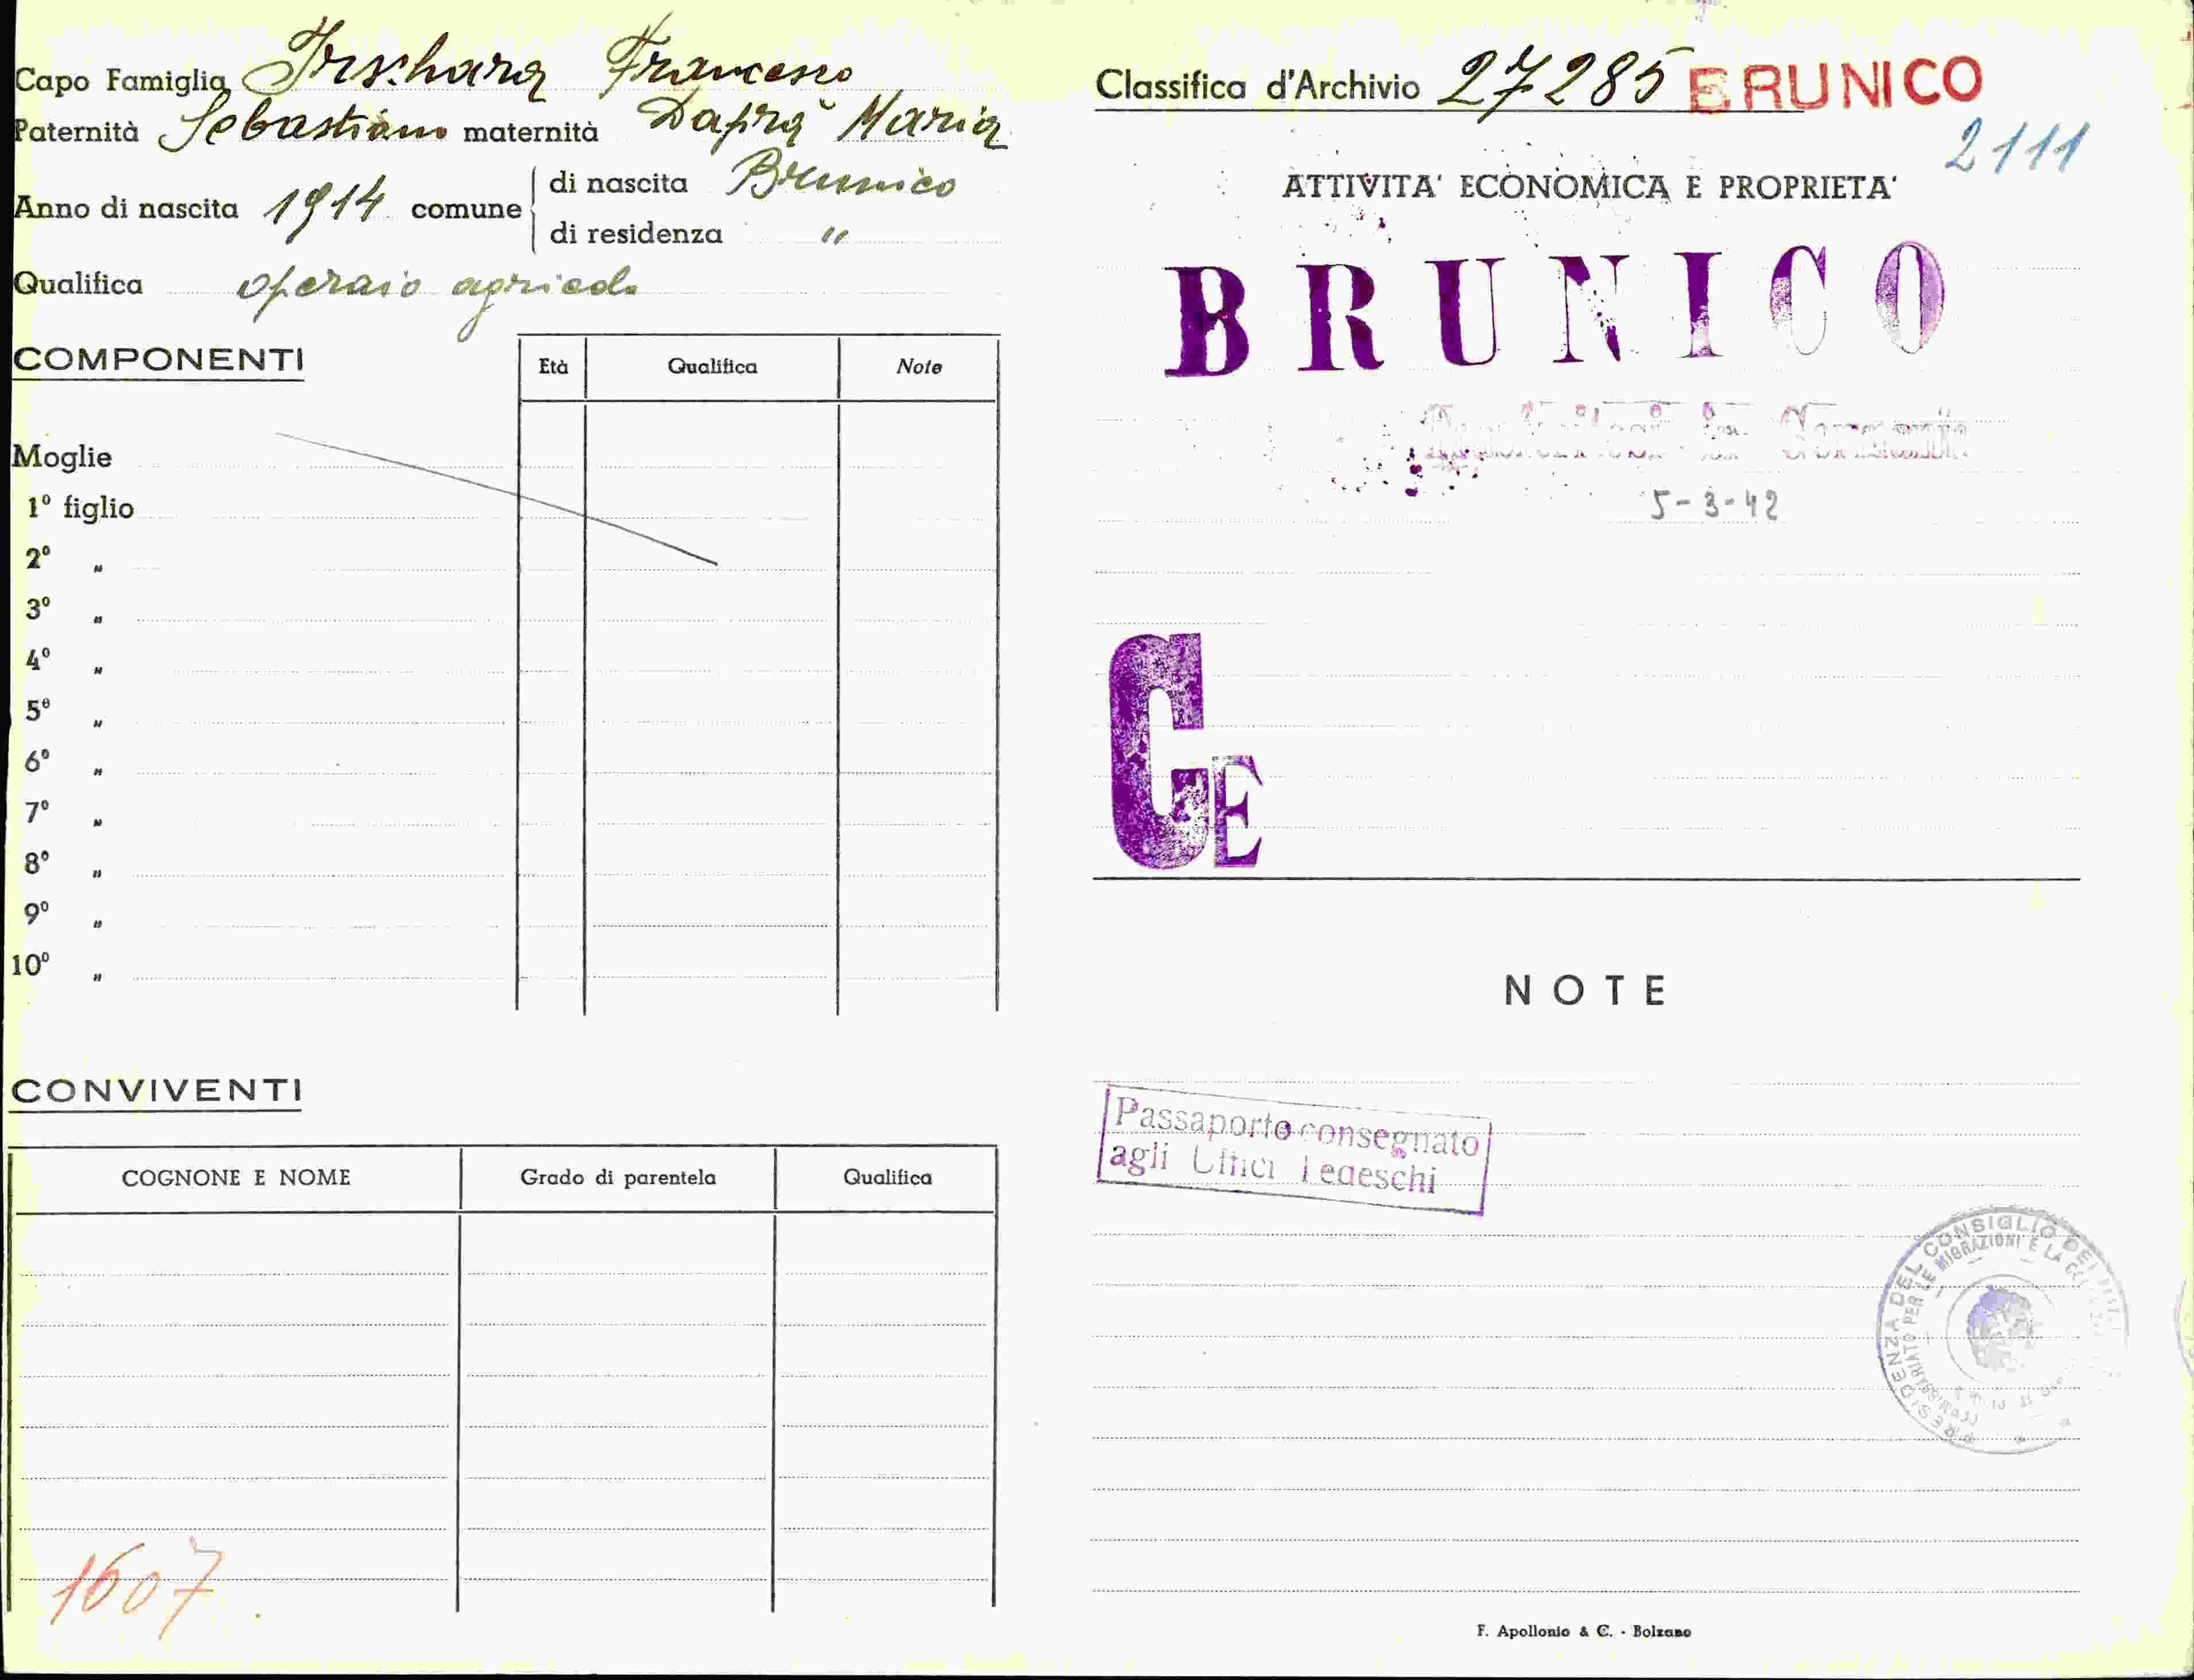 Capo Famiglia Irschara Francesco
Paternità Sebastiano maternità Daprà Maria
Anno di nascita 1914 comune
di nascita Brunico
di residenza "
Qualifica operaio agricolo
COMPONENTI
Età Qualifica Note
Moglie
1º figlio
2º "
3º "
4º "
5º "
6º "
7º "
8º "
9º "
10º "
CONVIVENTI
COGNONE E NOME Grado di parentela Qualifica
1607
Classifica d'Archivio 27285 BRUNICO
2111
ATTIVITA' ECONOMICA E PROPRIETA'
BRUNICO
in Germania
5-3-42
CE
NOTE
Passaporto consegnato
agli Uffici Tedeschi
PRESIDENZA DEL CONSIGLIO DEI
PER LE MIGRAZIONI E LA
F. Apollonio & C. - Bolzano